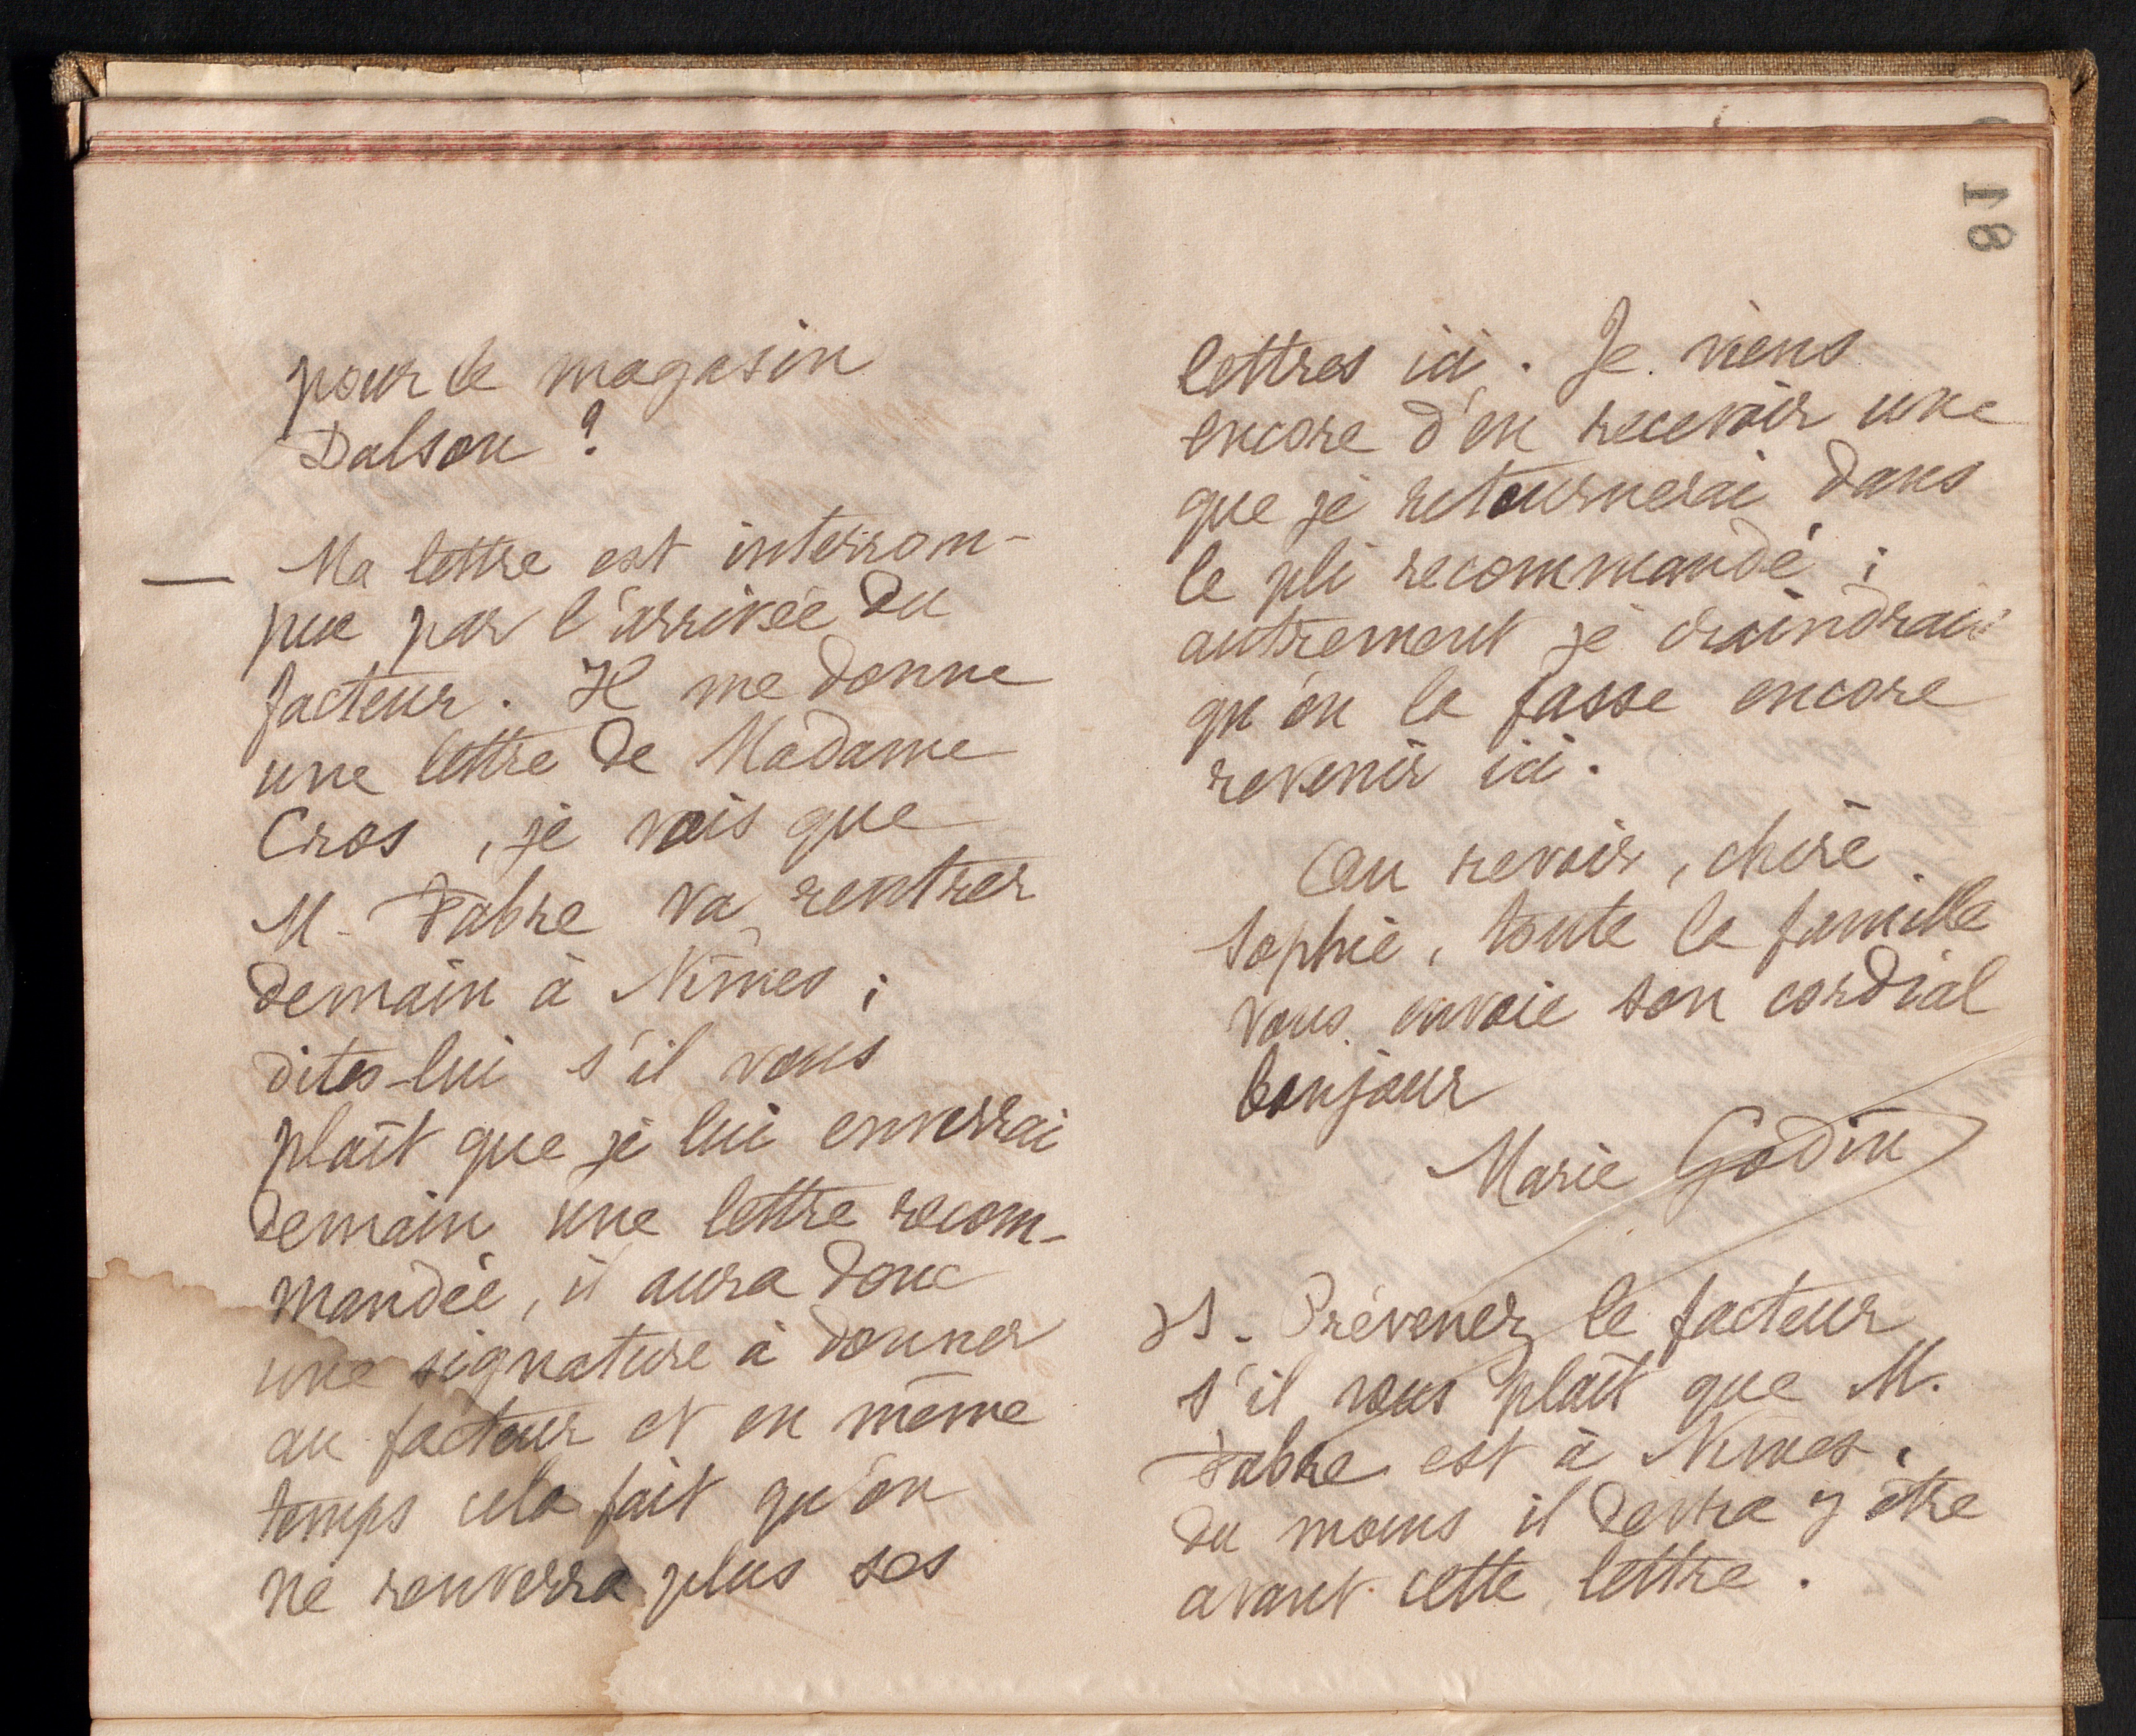 pour le magasin
Dalsou ?
— Ma lettre est interrom-
pue par l'arrivée du
facteur. Il me donne
une lettre de Madame
Cros, je vois que
M. Fabre va rentrer
demain à Nîmes ;
dites-lui s'il vous
plaît que je lui enverrai
demain une lettre recom-
mandée, il aura donc
une signature à donner
au facteur et en même
temps cela fait qu'on
ne renverra plus ses
81
lettres ici. Je viens
encore d'en recevoir une
que je retournerai dans
le pli recommandé ;
autrement je craindrais
qu'on la fasse encore
revenir ici.
Au revoir, chère
Sophie, toute la famille
vous envoie son cordial
bonjour
Marie Godin
PS. Prévenez le facteur
s'il vous plaît que M.
Fabre est à Nîmes,
du moins il devra y être
avant cette lettre.